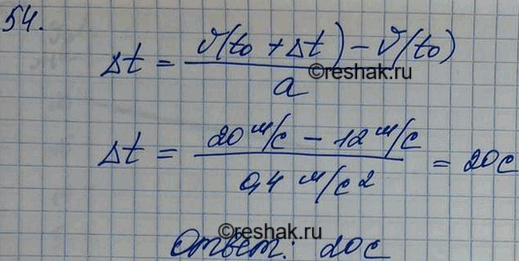 54.
Δt = (v(t₀ + Δt) − v(t₀)) / a
©reshak.ru
Δt = (20 м/с − 12 м/с) / 0,4 м/с² = 20с
©reshak.ru
Ответ: 20с